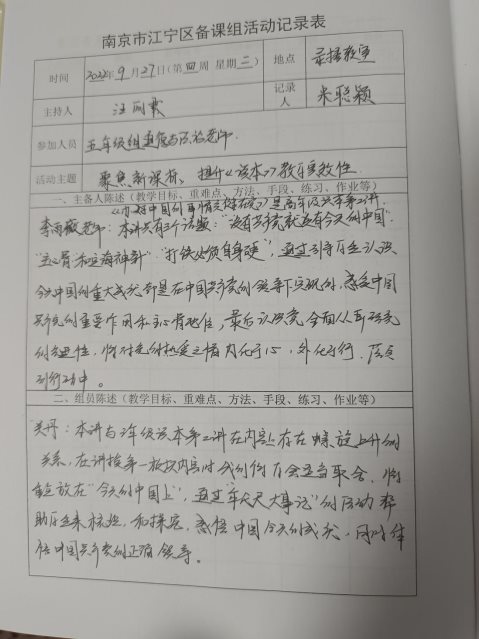 南京市江宁区备课组活动记录表
时间 2022年9月27日(第四周 星期二) 地点 录播教室
主持人 汪 记录人 米聪颖
参加人员 五年级组道德与法治老师
活动主题 聚焦新课标、提升《读本》教学实效性
一、主备人陈述(教学目标、重难点、方法、手段、练习、作业等)
《办好中国的事情关键在党》是高年级读本第2讲
李雨薇老师:本讲共有三个话题:“没有共产党就没有今天的中国”
“主心骨和定海神针”“打铁必须自身硬”,通过引导学生认识
今天中国的重大成就都是在中国共产党的领导下实现的,感受中国
共产党的重要作用和主心骨地位,最后认识党全面从严治党
的先进性,将对党的热爱之情内化于心,外化于行,落实
到行动中。
二、组员陈述(教学目标、重难点、方法、手段、练习、作业等)
吴丹:本讲与 年级读本第2讲在内容上存在螺旋上升的
关系,在讲授第一板块内容时我们 会适当取舍,将
重点放在“今天的中国”上,通过“ 大事记”的活动帮
助学生来梳理,和探究,感悟中国今天的成就,同时体
悟中国共产党的正确领导。